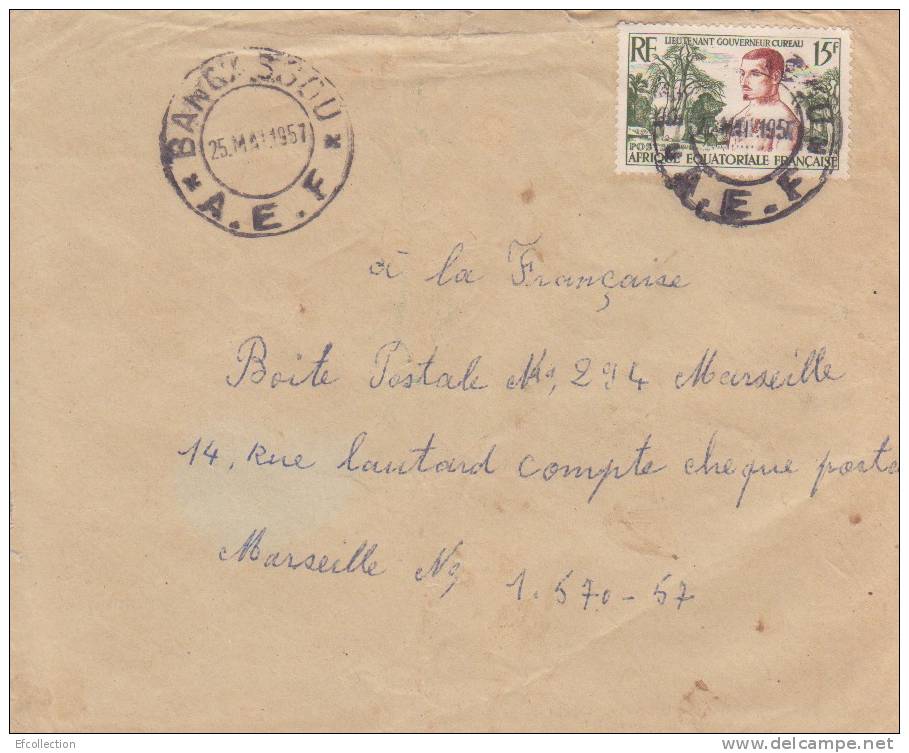 BANGASSOU
25.MAI.1957
* A.E.F *
LIEUTENANT GOUVERNEUR CUREAU
RF 15F
MAI 1957
POSTES
AFRIQUE EQUATORIALE FRANÇAISE
A.E.F
à la Française
Boite Postale No, 294 Marseille
14, Rue lautard compte cheque posta
Marseille No, 1.570-57
Efcollection
www.delcampe.net